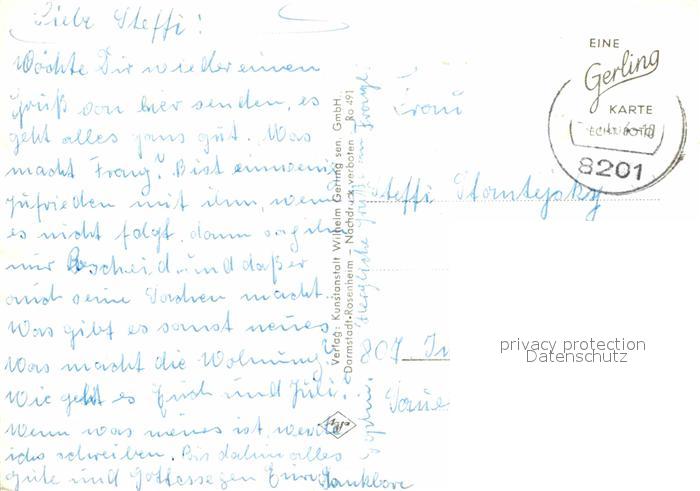 Liebe Steffi!
Möchte Dir wieder einen
Gruß von hier senden, es
geht alles ganz gut. Was
macht Franz? Bist
zufrieden mit ihm, wenn
es nicht folgt, dann sag ihm
nur Bescheid und daß er
auch seine Sachen macht.
Was gibt es sonst neues
Was macht die Wohnung?
Wie geht es Euch und Juli?
Wenn was neues ist, werde
ich schreiben. Bis dahin alles
gute und Gottessegen Eure dankbare
Herzliche Grüße an Franz!
Verlag: Kunstanstalt Wilhelm Gerling sen. GmbH.
Darmstadt-Rosenheim - Nachdruck verboten - Ro 491
EINE
Gerling
KARTE
ECHT FOTO
8201
Frau
Steffi
807 In
privacy protection
Datenschutz